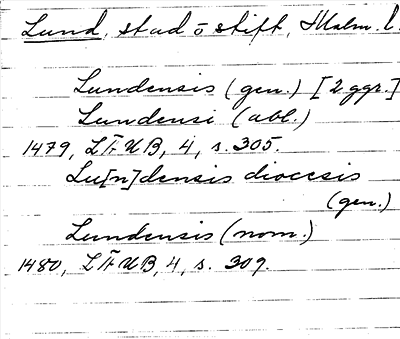 Lund, stad o stift, Malm. l.
Lundensis (gen.) [2 ggr.]
Lundensi (abl.)
1479, LÄUB, 4, s. 305.
Lu[n]densis diocesis
(gen.)
Lundensis (nom.)
1480, LÄUB, 4, s. 309.